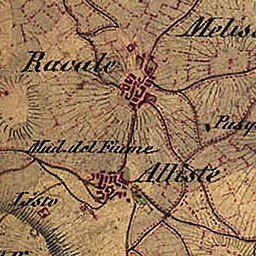 Melis
Racale
Pasq
Mad. del Fiume
Alliste
Listo